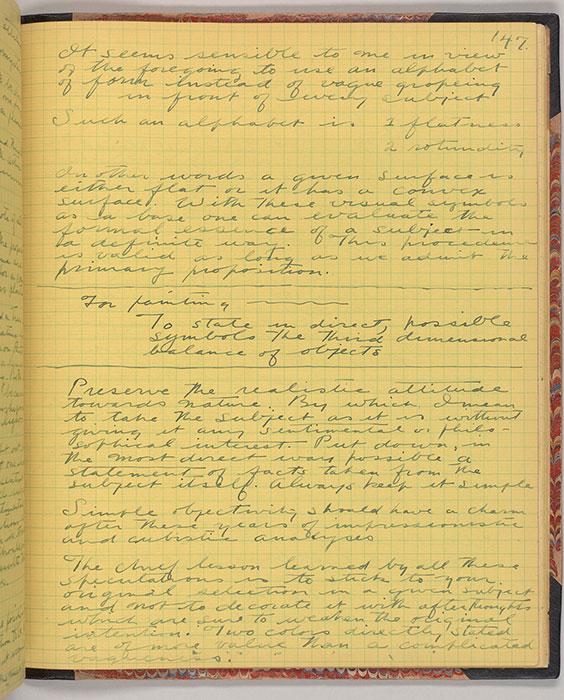 147.
It seems sensible to me in view
of the foregoing to use an alphabet
of form instead of vague gropeing
in front of every subject
Such an alphabet is 1 flatness
2 rotundity
In other words a given surface is
either flat or it has a convex
surface. With these visual symbols
as a base one can evaluate the
formal essence of a subject in
a definite way. This procedure
is valid as long as we admit the
primary proposition.
For painting
To state in direct, possible
symbols the third dimensional
balance of objects
Preserve the realistic attitude
towards nature. By which I mean
to take the subject as it is without
giving it any sentimental or philo-
sophical interest. Put down, in
the most direct way possible a
statement of facts taken from the
subject itself. Always keep it simple
Simple objectivity should have a charm
after these years of impressionistic
and cubistic analyses
The chief lesson learned by all these
speculations is to stick to your
original selection in a given subject
and not to decorate it with afterthoughts
which are sure to weaken the original
intention. Two colors directly stated
are of more value than a complicated
vagueness.